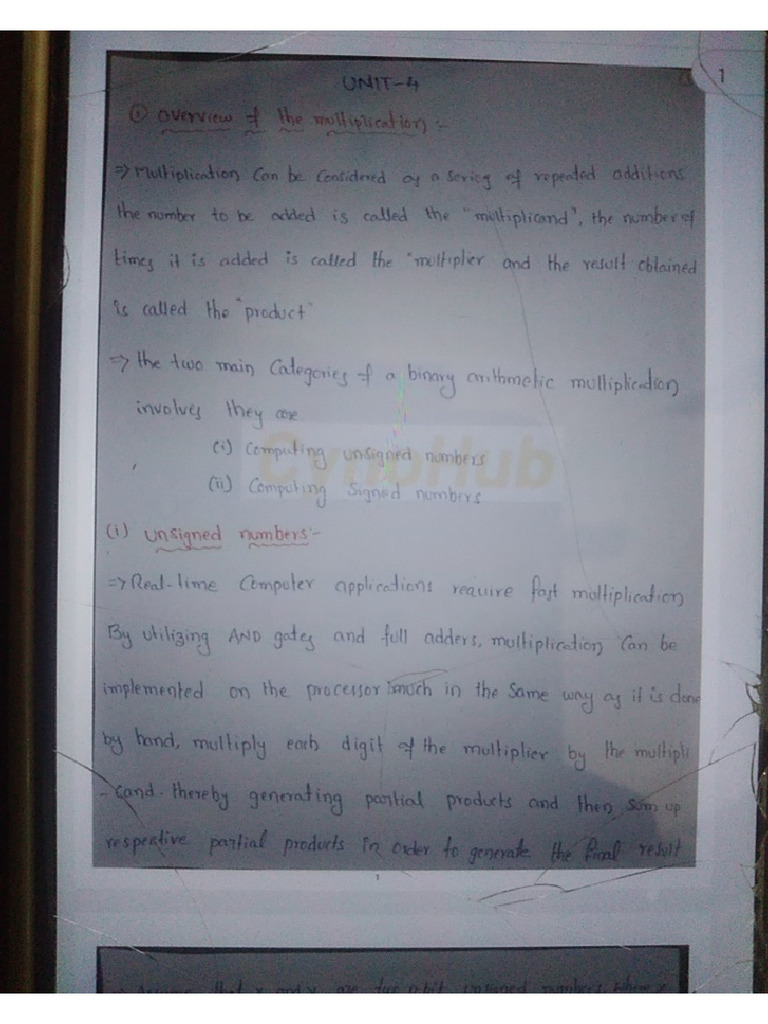 1
UNIT-4
① overview of the multiplication :-
=> Multiplication can be considered as a series of repeated additions
the number to be added is called the "multiplicand", the number of
times it is added is called the "multiplier and the result obtained
is called the "product"
=> the two main categories of a binary arithmetic multiplication
involves they are
(i) computing unsigned numbers
(ii) computing signed numbers
CynoHub
(i) unsigned numbers:-
=> Real-time computer applications require fast multiplication
By utilizing AND gates and full adders, multiplication can be
implemented on the processor much in the same way as it is done
by hand, multiply each digit of the multiplier by the multipli
-cand. thereby generating partial products and then sum up
respective partial products in order to generate the final result
1
that x and y are two n bit unsigned numbers, where x